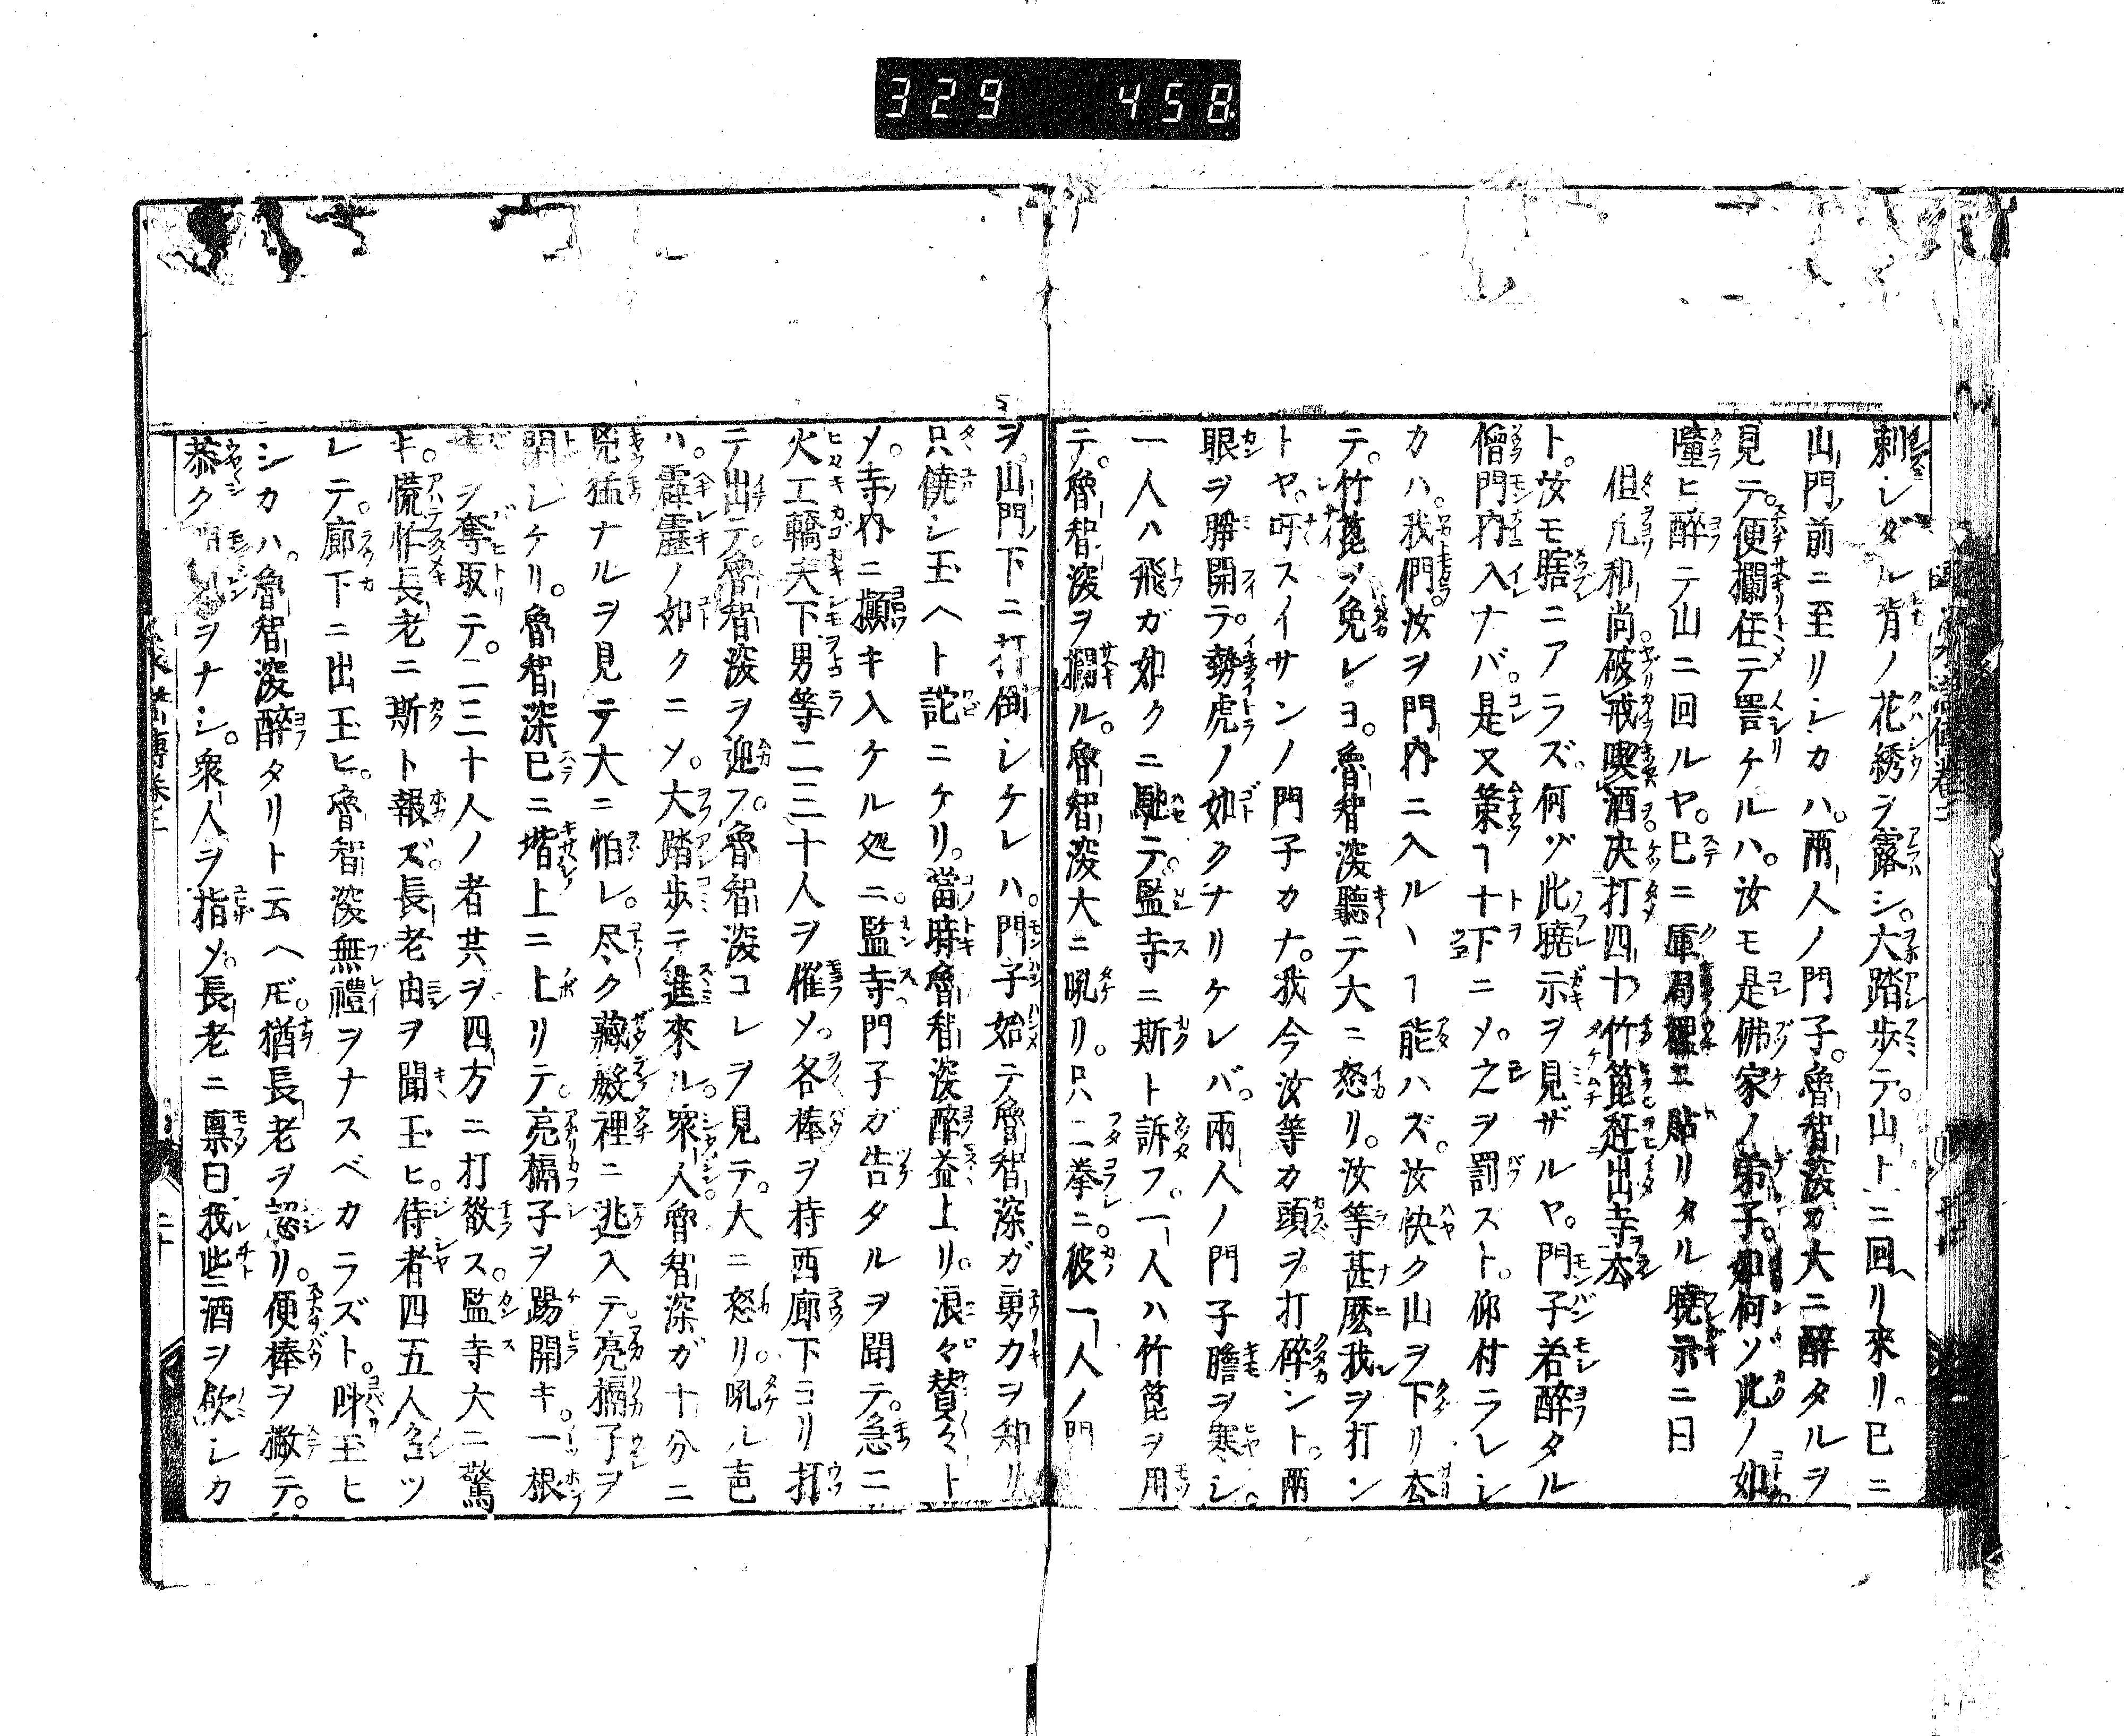 329 458
刺シタル背ノ花繡ヲ露シ。大踏歩テ。山ト二回リ來リ。已ニ
山門前ニ至リシカハ。兩人ノ門子。魯智深カ大ニ醉タルヲ
見テ。便攔住テ詈ケルハ。汝モ是佛家ノ弟子。如何ソ此ノ如
噇ヒ醉テ山ニ回ルヤ。已ニ庫局裡ニ貼リタル曉示ニ曰
但凢和尚破戒喫酒决打四十竹篦赶出寺去
ト。汝モ瞎ニアラズ。何ゾ此曉示ヲ見ザルヤ。門子若醉タル
僧門内入ナバ。是又策ヿ十下ニメ。之ヲ罰スト。仰付ラレシ
カハ。我們汝ヲ門内ニ入ルヽヿ能ハズ。汝快ク山ヲ下リ去
テ。竹篦ヲ免レヨ。魯智深聽テ大ニ怒リ。汝等甚麽我ヲ打ン
トヤ。可スイサンノ門子カナ。我今汝等カ頭ヲ打碎ント。兩
眼ヲ睜開テ。勢虎ノ如クナリケレバ。兩人ノ門子膽ヲ寒シ。
一人ハ飛ガ如クニ馳テ。監寺ニ斯ト訴フ。一人ハ竹篦ヲ用
テ。魯智深ヲ攔ル。魯智深大ニ吼リ。只二拳ニ。彼一人ノ門
ヲ。山門下ニ打倒シケレハ。門子始テ魯智深ガ勇力ヲ知リ
只僥シ玉ヘト詫ニケリ。當時魯智深醉益上リ。浪々賛々ト
メ。寺内ニ攧キ入ケル処ニ。監寺門子ガ告タルヲ聞テ。急ニ
火工轎夫下男等二三十人ヲ催メ。各棒ヲ持西廊下ヨリ打
テ出テ。魯智深ヲ迎フ。魯智深コレヲ見テ。大ニ怒リ。吼ル声
ハ。霹靂ノ如クニメ。大踏歩テ進來ル。衆人魯智深ガ十分ニ
兇猛ナルヲ見テ大ニ怕レ。尽ク藏殿裡ニ逃入テ。亮槅子ヲ
閉シケリ。魯智深已ニ堦上ニ上リテ。亮槅子ヲ踢開キ。一根
ヲ奪取テ。二三十人ノ者共ヲ四方ニ打散ス。監寺大ニ驚
キ。慌忙長老ニ斯ト報ズ。長老由ヲ聞玉ヒ。侍者四五人召ツ
レテ。廊下ニ出玉ヒ。魯智深無禮ヲナスベカラズト。呌玉ヒ
シカハ。魯智深醉タリト云ヘ𪜈。猶長老ヲ認リ。便棒ヲ撇テ。
恭ク問訊ヲナシ。衆人ヲ指メ。長老ニ禀曰我些酒ヲ飲シカ